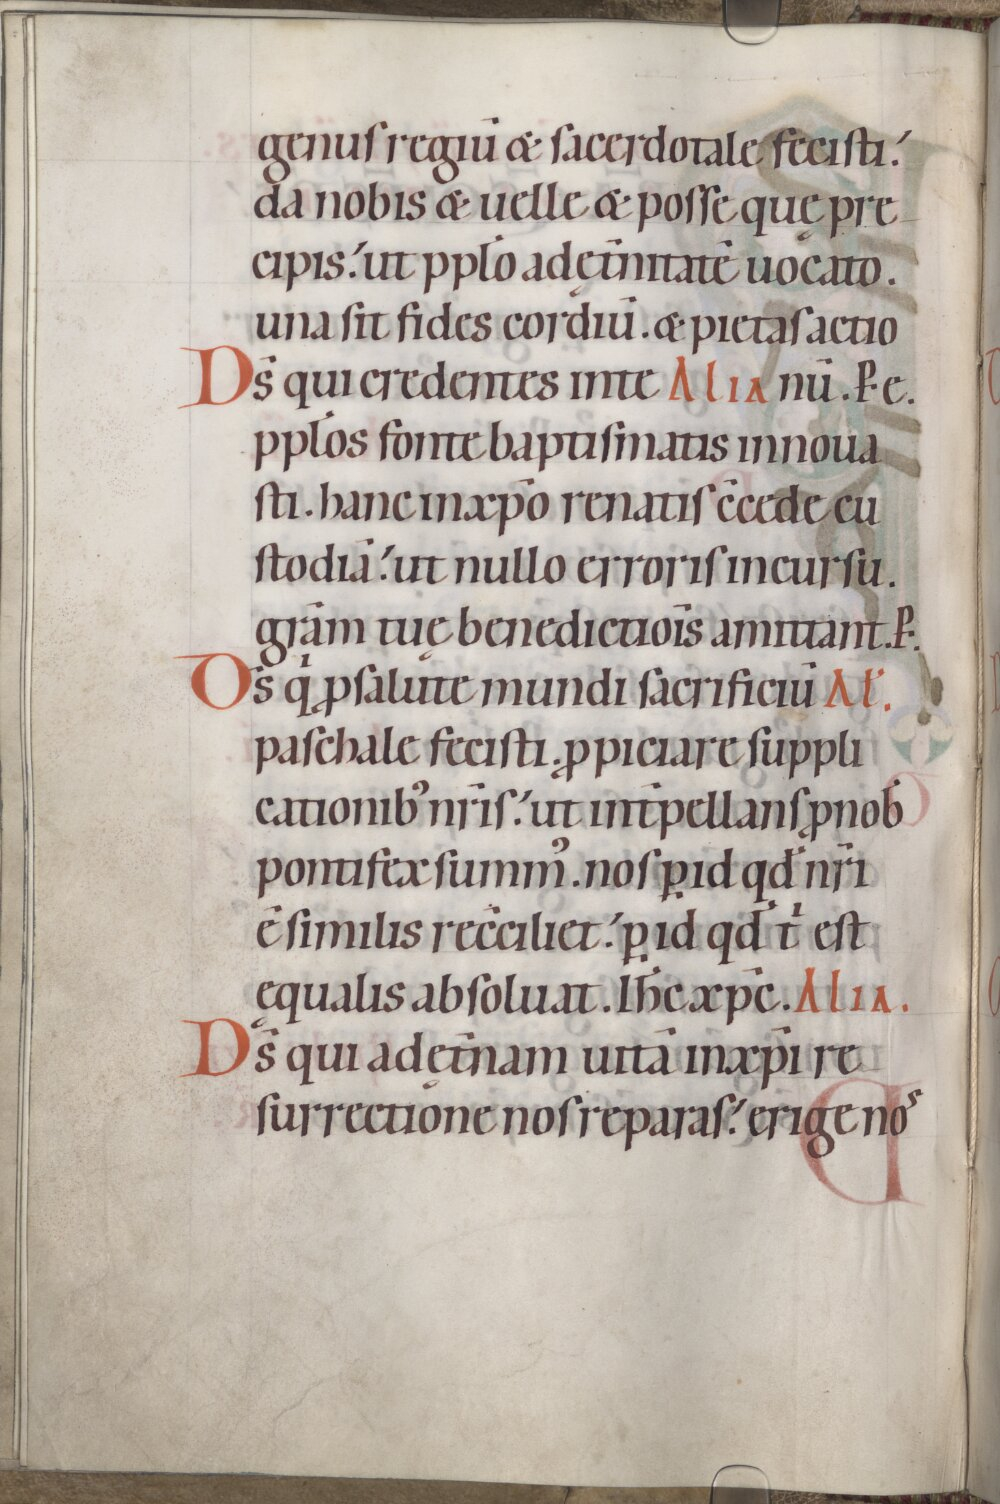 genus regiū & sacerdotale fecisti.
da nobis & uelle & posse quę pre
cipis. ut ppl̄o ad ęt̄nitatē uocato.
una sit fides cordiū. & pietas actio
Ds̄ qui credentes in te Alia nū. P. e.
ppl̄os fonte baptismatis innoua
sti. hanc in xp̄o renatis c̄cede cu
stodiā. ut nullo erroris incursu.
grām tuę benedictiōis amittant. P.
Ds̄ q̇ ꝓ salute mundi sacrificiū Al̄.
paschale fecisti. ꝓpiciare suppli
cationibꝰ nr̄is. ut int̄pellans ꝓ nob̄
pontifex summꝰ. nos ꝑ id qd̄ nr̄i
ē similis rec̄ciliet. ꝑ id qd̄ t̍ est
ęqualis absoluat. Ih̄c xp̄c. Alia.
Ds̄ qui ad ęt̄nam uitā in xp̄i re
surrectione nos reparas. erige nos